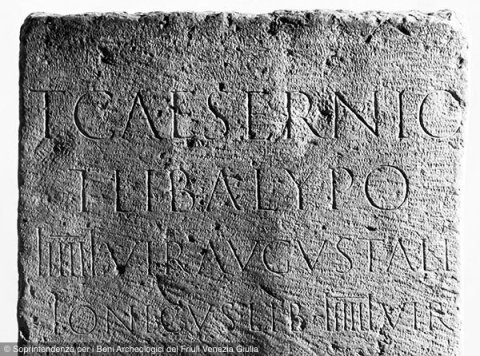 T CAESERNIO
T LIB ALYPO
IIIIIIVIR AUGUSTALI
IONICUS LIB IIIIIIVIR
© Soprintendenza per i Beni Archeologici del Friuli Venezia Giulia